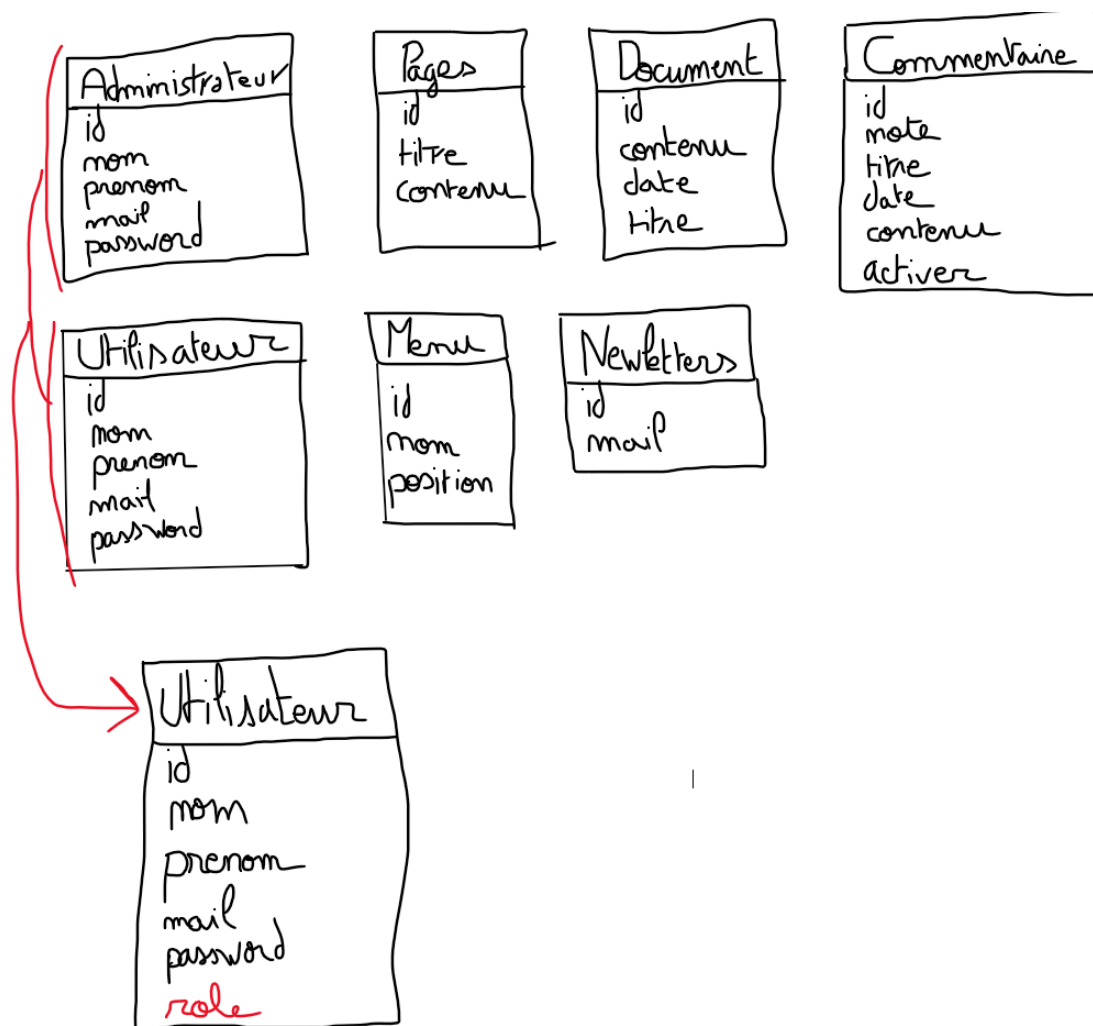 Administrateur
id
nom
prenom
mail
password
Pages
id
titre
contenu
Document
id
contenu
date
titre
Commentaire
id
note
titre
date
contenu
activer
Utilisateur
id
nom
prenom
mail
password
Menu
id
nom
position
Newletters
id
mail
Utilisateur
id
nom
prenom
mail
password
role